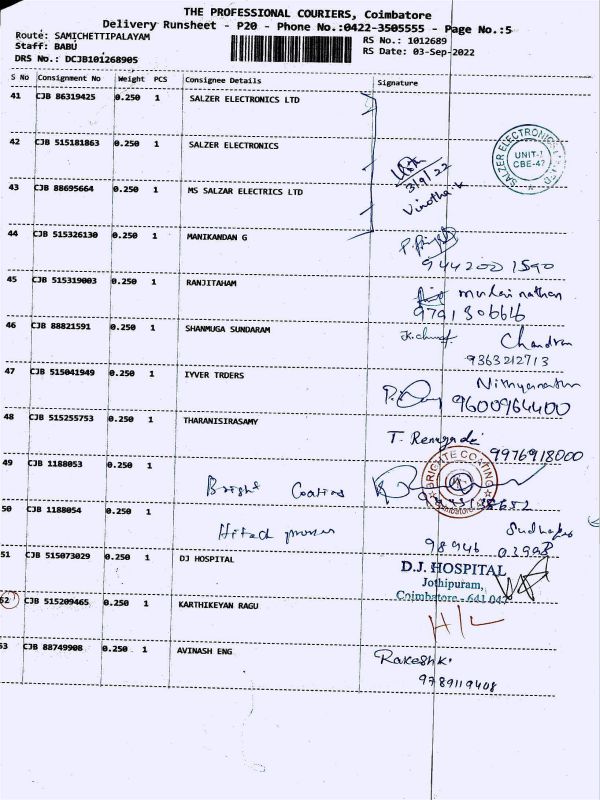 THE PROFESSIONAL COURIERS, Coimbatore
Delivery Runsheet - P20 - Phone No.:0422-3505555 - Page No.:5
Route: SAMICHETTIPALAYAM RS No.: 1012689
Staff: BABU RS Date: 03-Sep-2022
DRS No.: DCJB101268905
S No Consignment No Weight PCS Consignee Details Signature
41 CJB 86319425 0.250 1 SALZER ELECTRONICS LTD
42 CJB 515181863 0.250 1 SALZER ELECTRONICS
SALZER ELECTRONICS LTD
UNIT-1
CBE-47
3/9/22
43 CJB 88695664 0.250 1 MS SALZAR ELECTRICS LTD
Vinotha.k
44 CJB 515326130 0.250 1 MANIKANDAN G
9442001590
45 CJB 515319003 0.250 1 RANJITAHAM
9791306616
46 CJB 88821591 0.250 1 SHANMUGA SUNDARAM
Chandran
9363212713
47 CJB 515041949 0.250 1 IYVER TRDERS
9600964400
48 CJB 515255753 0.250 1 THARANISIRASAMY
9976918000
49 CJB 1188053 0.250 1
Bright Coatins
BRIGHTE COATING
Coimbatore
50 CJB 1188054 0.250 1
Hitech
98946 03998
51 CJB 515073029 0.250 1 DJ HOSPITAL
D.J. HOSPITAL
Jothipuram,
Coimbatore - 641 047
52 CJB 515209465 0.250 1 KARTHIKEYAN RAGU
H/L
53 CJB 88749908 0.250 1 AVINASH ENG
Rakesh K.
9789119408